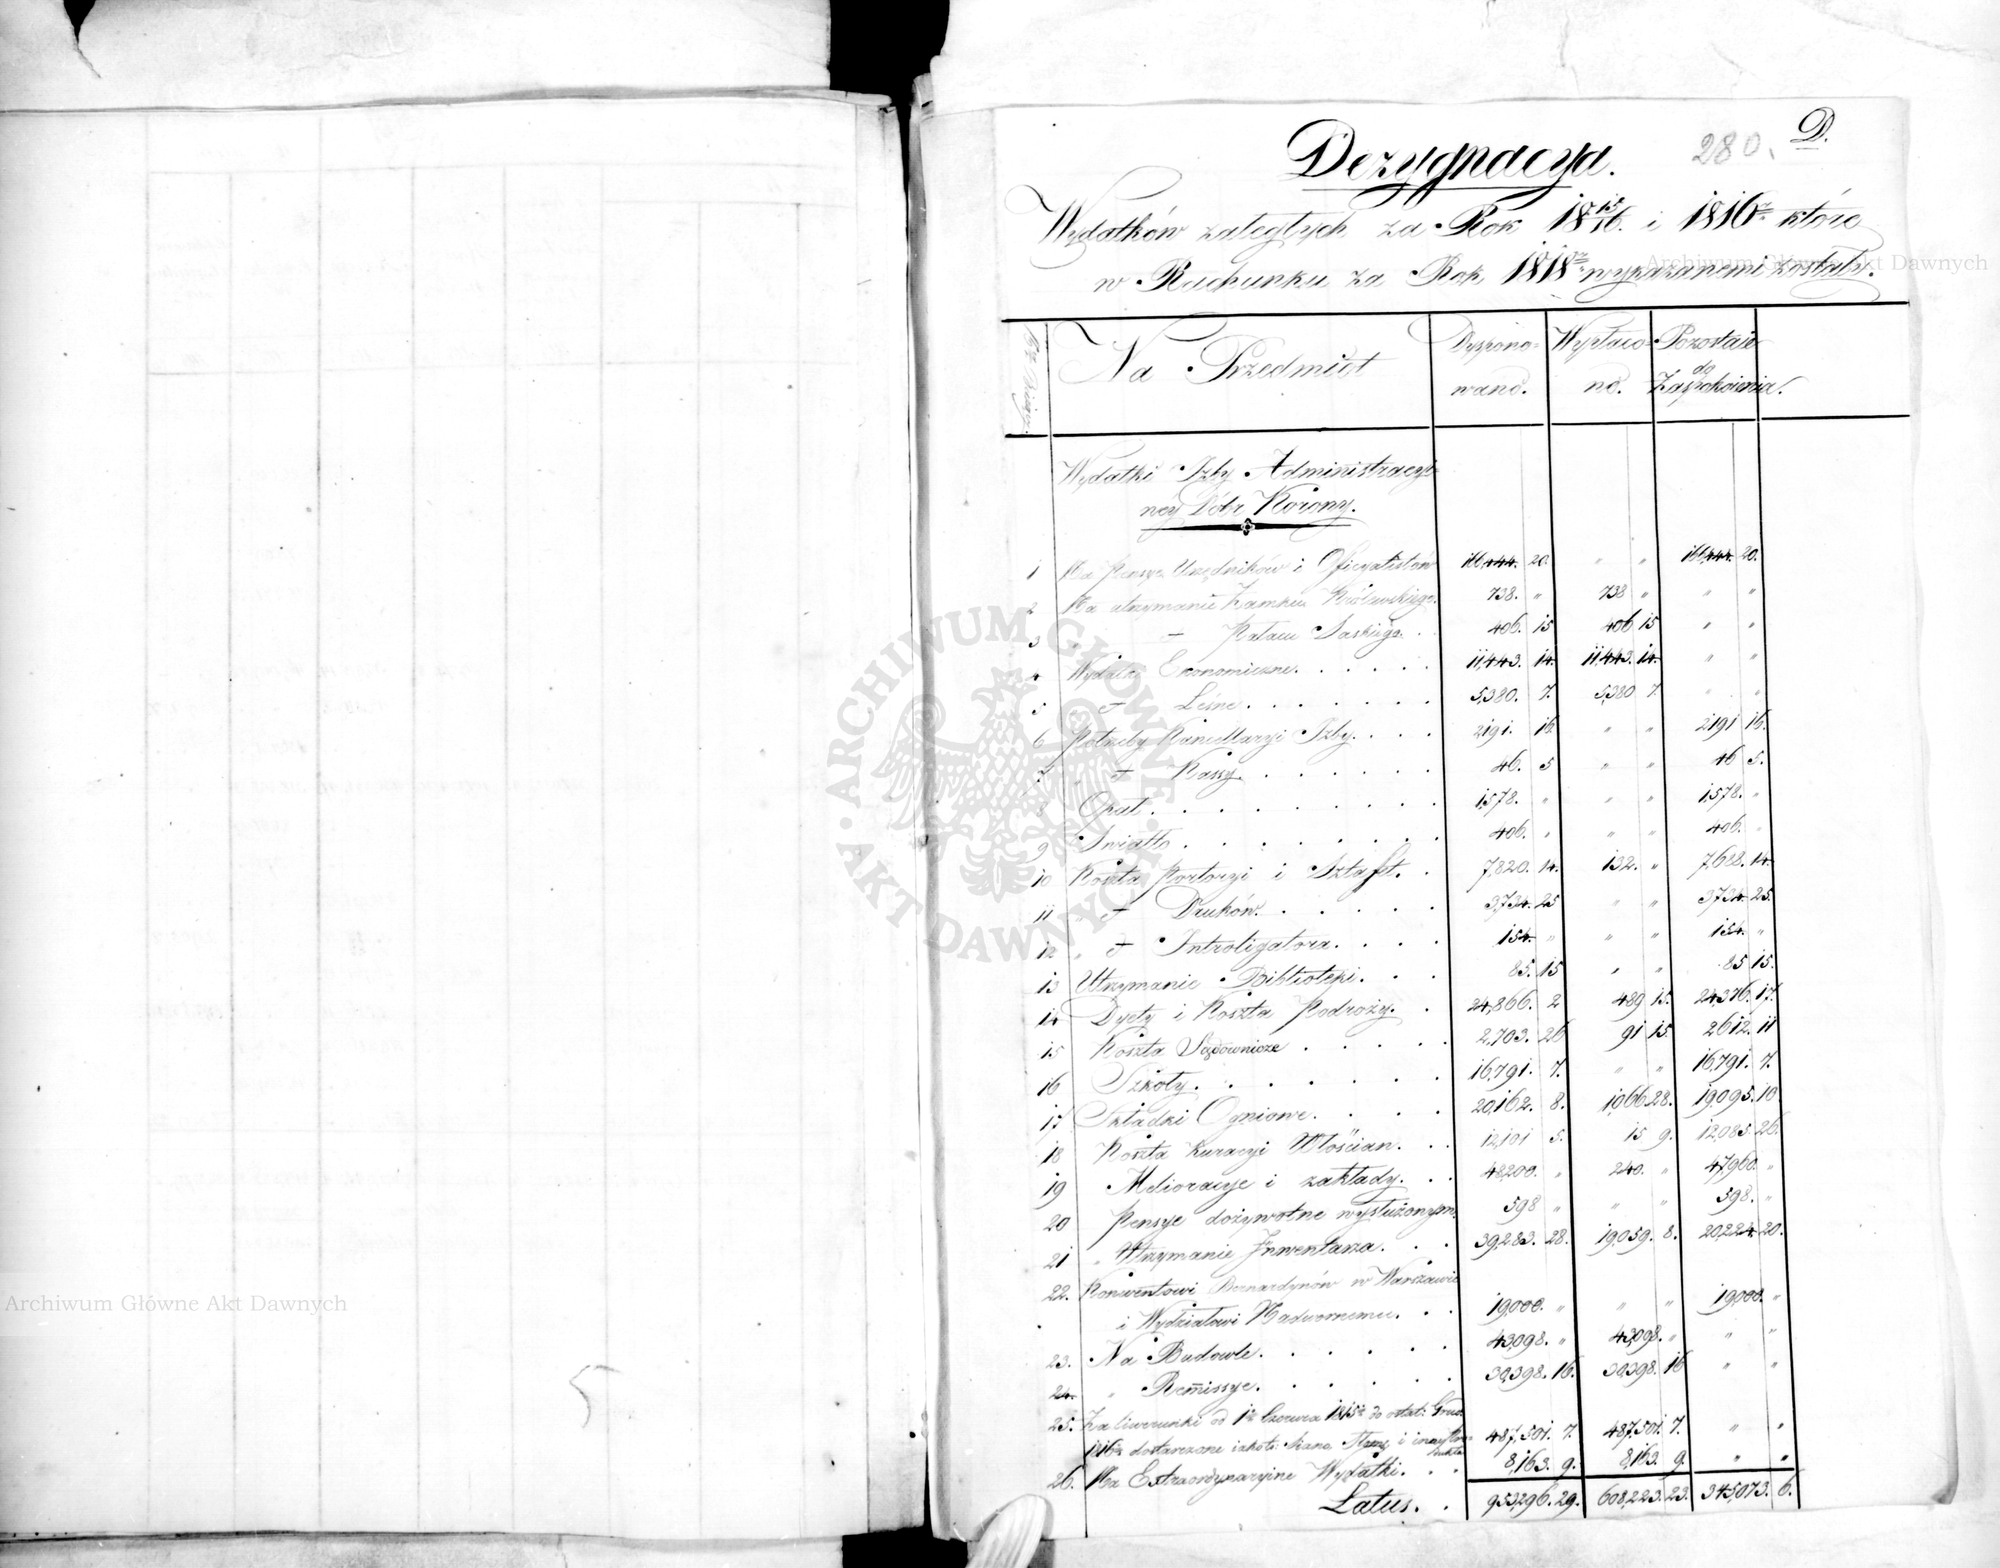 280. D.
Dezygnacya.
Wydatków zaległych za Rok 18 15/16. i 1816/7. które
w Rachunku za Rok 1817/18 wykazanemi zostały.
Na Przedmiot Dyspono- Wypłaco- Pozostaie
wano. no. do Zaspokoienia.
Wydatki Izby Administracyi-
ney Dóbr Korony.
1 Na Pensye Urzędników i Oficyalistów 20. " " 20.
2 Na utrzymanie Zamku Królewskiego. 738. " 738 " " "
3 " + Pałacu Saskiego. . 406. 15 406 15 " "
4 Wydatki Ekonomiczne. . . . . . 11,443. 14. 11,443. 14. " "
5 + Leśne. . . . . . . 5,380. 7. 5,380 7. " "
6 Potrzeby Kancellaryi Izby. . . . 2191. 16. " " 2191 16.
7 " + Kassy. . . . . . . 46. 5 " " 46 5.
8 Opał. . . . . . . . . 1,578. " " " 1,578. "
9 Swiatło. . . . . . . . 406. " " " 406. "
10 Koszta Portoryi i Sztafet. . 7,820. 14. 132. " 7,688. 14.
11 + Druków. . . . . . 3,734. 25 " " 3734. 25.
12 " + Introligatora. . . . 154. " " " 154. "
13 Utrzymanie Biblioteki. . . 85. 15 " " 85 15.
14 Dyety i Koszta Podroży. . 24,866. 2 489 15. 24,376. 17.
15 Koszta Sądownicze . . . . . 2,703. 26 91 15. 2612. 11
16 Szkoły. . . . . . . 16,791. 7. " " 16,791. 7.
17 Składki Ogniowe. . . . 20,162. 8. 1,066. 28. 19,095. 10
18 Koszta Kuracyi Włościan. . . 12,101 5. 15 9. 12,085 26.
19 Melioracye i zakłady. . . 48,200. " 240. " 47,960. "
20 Pensye dożywotne wysłużonym. 598 " " " 598. "
21 " Utrzymanie Inwentarza. . . 39,283. 28. 19,059. 8. 20,224. 20.
22. Konwentowi Bernardynów w Warszawie
i Wydziałowi Nadwornemu. . . 19,000. " " " 19,000. "
23. Na Budowle. . . . . . 43,098. " 43,098. " " "
24. " Remissye. . . . . . 30,398. 16. 30,398. 16 " "
25. Za liwerunki od 1go Czerwca 1815 do ostat: Grud:
1816 dostarczone iakoto: Siano, Słomę i inne Produkta 487,501. 7. 487,501. 7. " "
26. Na Extraordynaryine Wydatki. . . 8,163. 9. 8,163. 9. " "
Latus. . 953,296. 29. 608,223. 23. 345,073. 6.
ARCHIWUM GŁÓWNE AKT DAWNYCH
Archiwum Główne Akt Dawnych
Archiwum Główne Akt Dawnych